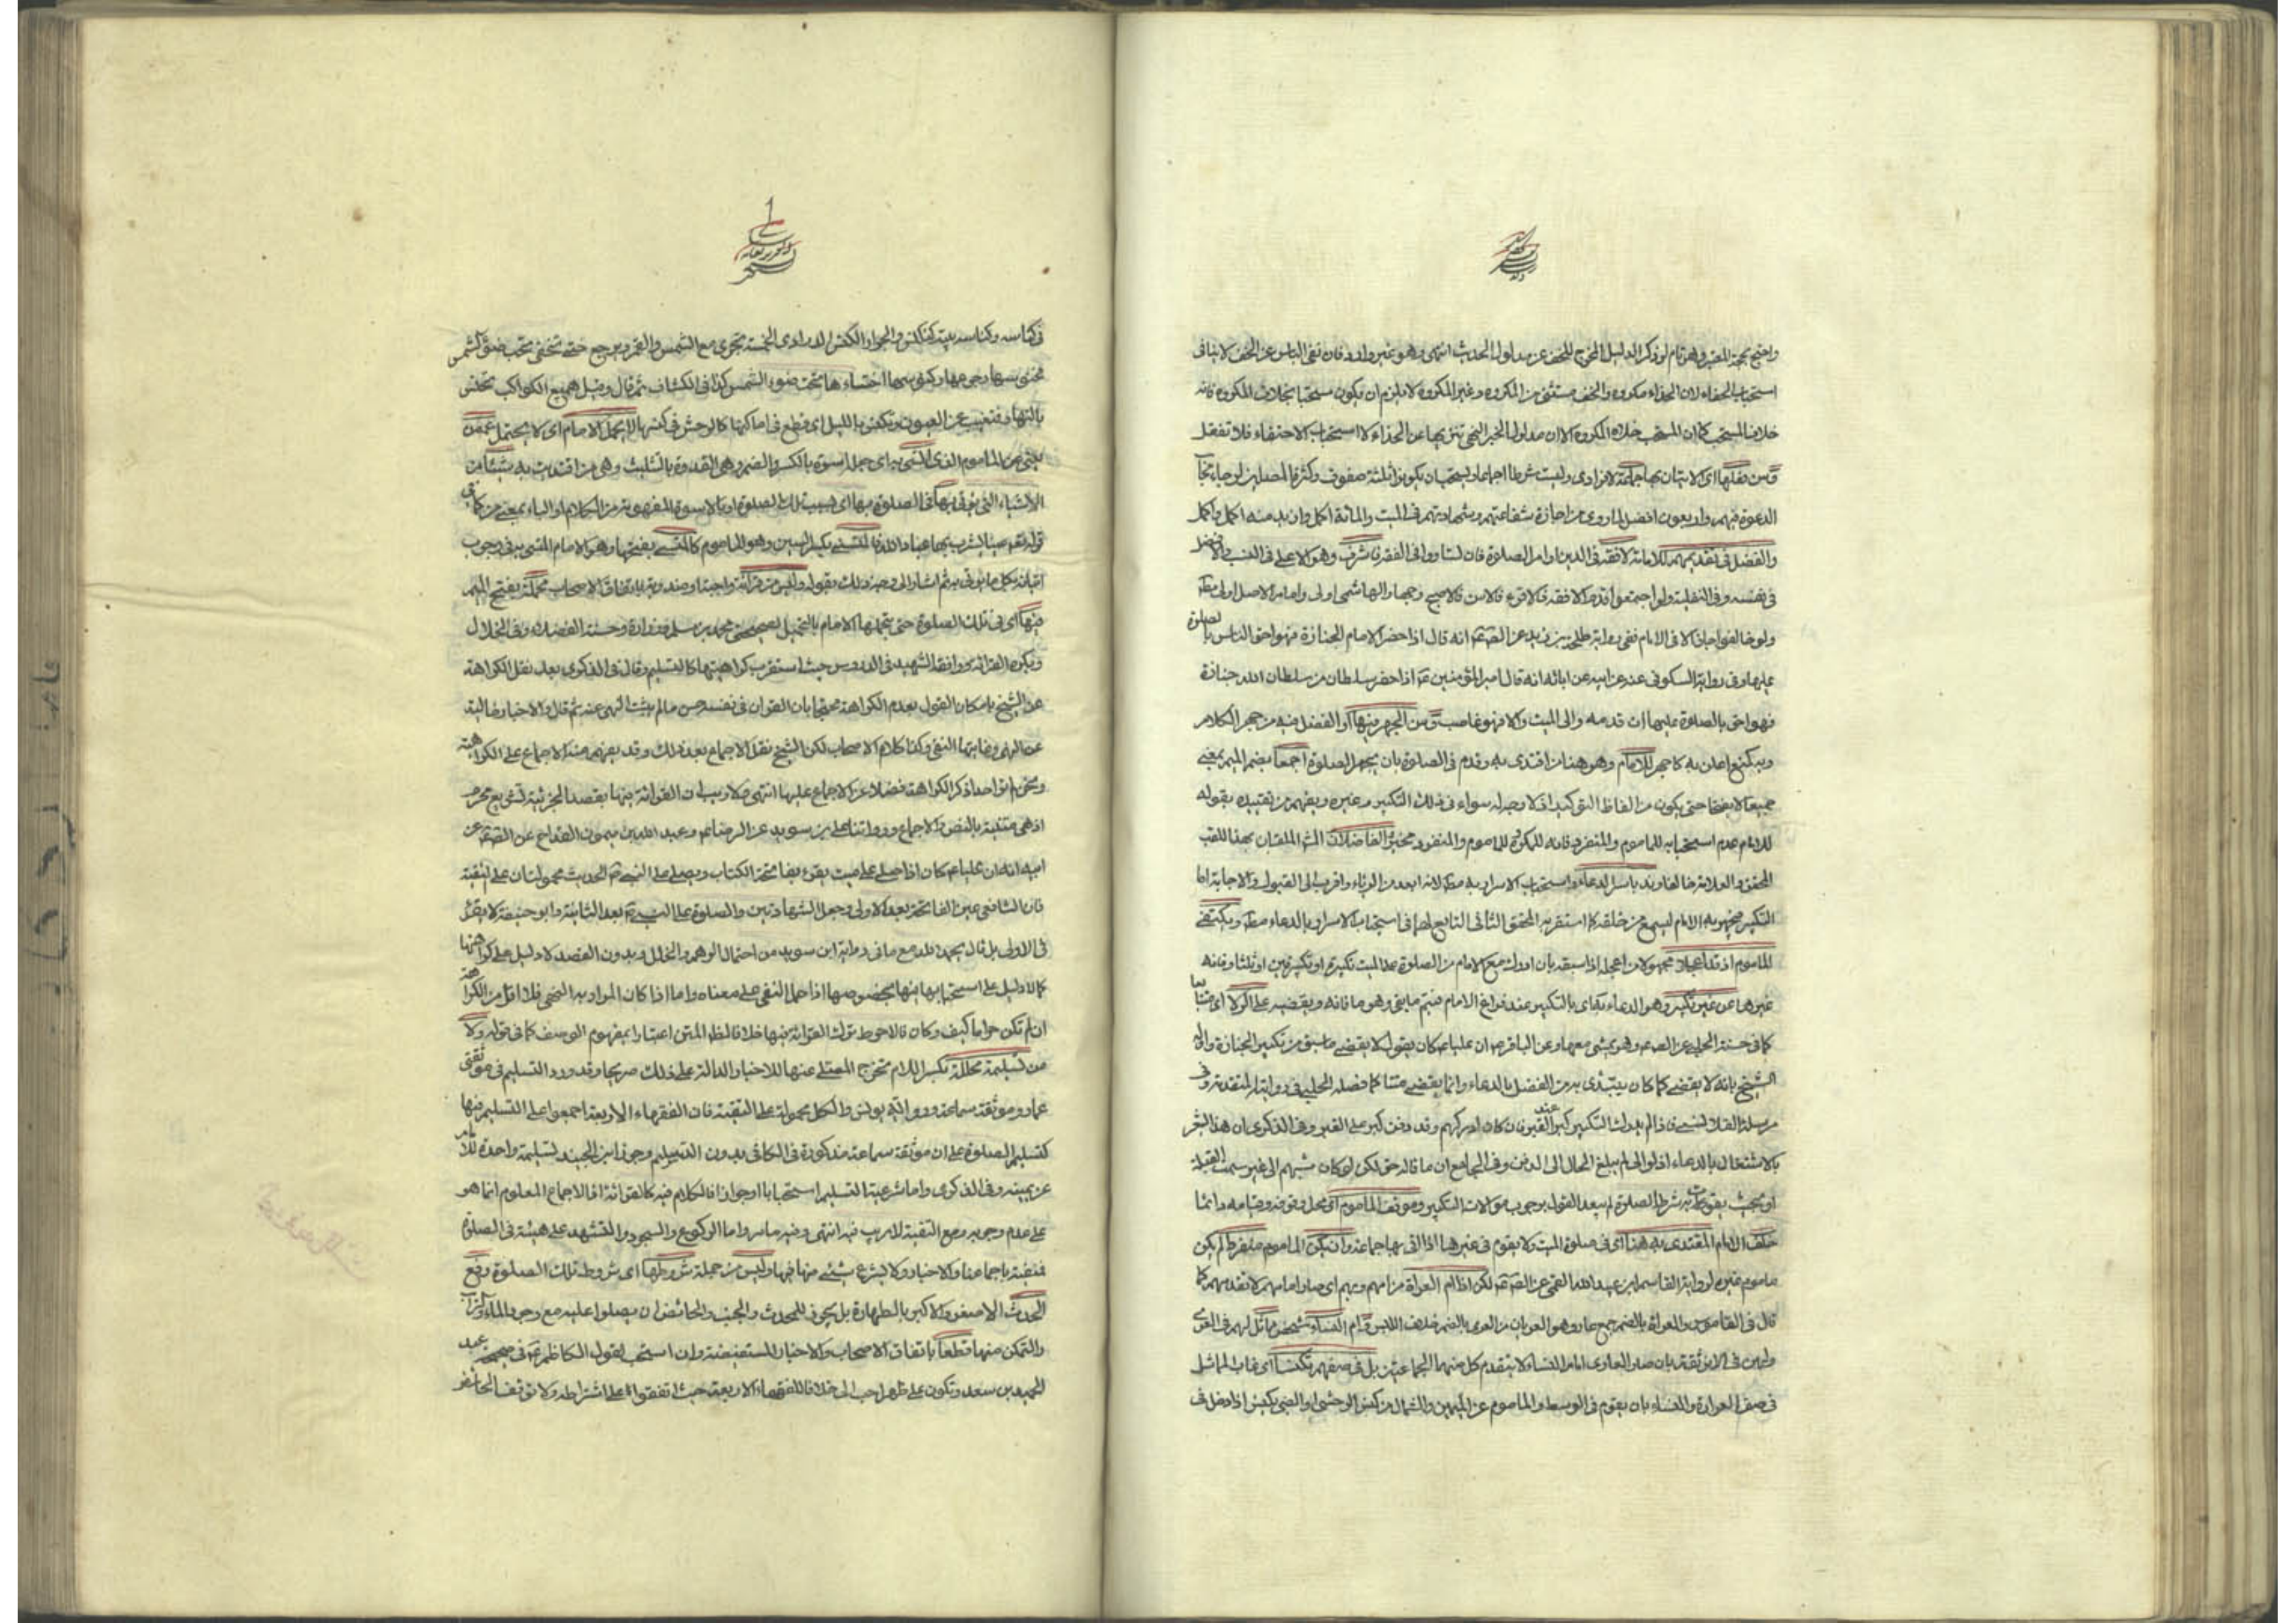 واحتج بحجة المعتبر وهو تام لو ذكر الدليل المخرج للخف عن مدلول الحديث انتهى وهو غير وارد فان نفي الباس عن الخف لا ينافي
استحباب الحفاء لان الحذاء مكروه والخف مستثنى من المكروه وغير المكروه لا يلزم ان يكون مستحبا بخلاف المكروه فانه
خلاف المستحب كما ان المستحب خلاف المكروه الا ان مدلول الخبر النهي تنزيها عن الحذاء لا استحباب الاحتفاء فلا تغفل
وسن فعلها اي الاتيان بها جماعة لا فرادى وليست شرطا اجماعا ويستحب ان يكونوا ثلثة صفوف وكثرة المصلين لرجاء
الدعوة فيهم واربعون افضل لما روي من اجازة شفاعتهم وشهادتهم في الميت والمائة اكمل وان زيد منه اكمل واكمل
والفضل في تقديمهم للامامة لافقه في الدين او امر الصلوة فان تساووا في الفقه فاشرف وهو الاعلى في النسب والافضل
في نفسه وفي النفلية ولو اجتمعوا قدم الافقه فالاقرء فالاسن فالاصبح وجها والهاشمي اولى وامام الاصل اولى مط
ولو خالفوا جاز الا في الامام ففي رواية طلحة بن زيد عن الصم انه قال اذا حضر الامام الجنازة فهو احق الناس بالصلوة
عليها وفي رواية السكوني عنه عن ابيه عن ابائه انه قال امير المؤمنين ع اذا حضر سلطان من سلطان الله جنازة
فهو احق بالصلوة عليها ان قدمه ولي الميت والا فهو غاصب وسن الجهر فيها او الفضل فيه من جهر الكلام
وبه كمنع اعلن به كاجهر للامام وهو هنا من اقتدى به وقدم في الصلوة بان يجهر الصلوة اجمعا بضم الميم بمعنى
جميعا لا بفتحها حتى يكون من الفاظ التوكيد اذ لا وجه له سواء في ذلك التكبير وغيره ويفهم من تقييده بقوله
للامام عدم استحبابه للماموم والمنفرد فانه للذكرى للماموم والمنفرد مخير الفاضلان الش الملقبان بهذا اللقب
المحقق والعلامة خالفا وند باسرار الدعاء واستحباب الاسرار به مط لانه ابعد من الرياء واقرب الى القبول والاجابة اما
التكبير فيجهر به الامام ليسمع من خلفه كما استقربه المحقق الثاني التابع لهما في استحباب الاسرار بالدعاء مط ويكتفي
الماموم اذ قد اعجل مجهولا من اعجله اذا سبقه بان ادرك مع الامام من الصلوة على الميت تكبيرة او تكبيرتين او ثلثا وفاته
غيرها عن غير تكبير وهو الدعاء بالتكبير عند فراغ الامام فيتم ما بقي وهو ما فاته ويقضيه على الولا اي متتابعا
كما في حسنة الحلبي عن الصم وهو يمشي معها وعن الباقر ان عليا ع كان يقول لا يقضي ما سبق من تكبير الجنازة واول
الشيخ بانه لا يقضي كما كان يبتدى به من الفصل بالدعاء وانما يقضي متتابعا كما فصله الحلبي في روايته المتقدمة وفي
مرسلة القلانسي فاذا لم يدرك التكبير كبر عند القبر فان كان ادركهم وقد دفن كبر على القبر وفي الذكرى ان هذا اشعر
بالاشتغال بالدعاء اذ لو والى لم يبلغ الحال الى الدفن وفي الجامع ان ما قاله حق لكن لو كان مشيهم الى غير سمت القبلة
او بحيث يفوت به شرط الصلوة لم يبعد القول بوجوب موالات التكبير وموقف الماموم اي محل وقوفه وقيامه دائما
خلف الامام المقتدى به هنا اي في صلوة الميت ولا يقوم في غيرها اذا اتى بها جماعة وان يكن الماموم منفردا لم يكن
ماموم غيره لرواية القاسم بن عبيد الله القمي عن الصم لكن اذا ام العراة من امهم وبهم اي صار امامهم لا تقدمهم كما
قال في القاموس والعراة بالضم جمع عار وهو العريان من العري بالضم خلاف اللبس او ام النساء شخص ماثل لهم في العري
ولهن في الانوثة بان صار العاري امام النساء لا يتقدم كل منهما الجماعتين بل في صفهم تكنسا اي غاب الماثل
في صف العراة والنساء بان يقوم في الوسط والماموم عن اليمين والشمال من كنس الوحشي او الظبي يكنس اذا دخل في
في كناسه وكناسه بيته كتكنس والجوار الكنس الدراري الخمسة تجري مع الشمس والقمر وترجع حتى تخفى تحت ضوء الشمس
فخنوسها رجوعها وكنوسها اختفاءها تحت ضوء الشمس كذا في الكشاف ثم قال وقيل هي جميع الكواكب تخنس
بالنهار فتغيب عن العيون وتكنس بالليل اي تطلع في اماكنها كالوحش في كنسها لا يحمل الامام اي لا يحتمل عمن
يعني عن الماموم الذي ائتسى به اي جعل اسوة بالكسر والضم وهي القدوة بالتثليث وهي من اقتديت به شيئا من
الاشياء التي يؤتى بها في الصلوة بها اي بسبب تلك الصلوة او بالاسوة المفهومة من الكلام او الباء بمعنى من كما في
قوله تعالى عينا يشرب بها عباد الله فالمؤتسي بكسر السين وهو الماموم كالمؤتسى بفتحها وهو الامام المؤتسى به في وجوب
اتيانه بكل ما يؤتى به ثم اشار الى وجه ذلك بقوله وليس من قرائة واجبة او مندوبة باتفاق الاصحاب محملة بفتح الميم
فيها اي في تلك الصلوة حتى يتحملها الامام بالتحميل لصحيحتي محمد بن مسلم وزرارة وحسنة الفضلاء وفي الخلال
ويكره القرائة ووافقه الشهيد في الدروس حيث استقرب كراهيتها كالتسليم وقال في الذكرى بعد نقل الكراهة
عن الشيخ بامكان القول بعدم الكراهة محتجا بان القران في نفسه حسن ما لم يثبت النهي عنه ثم قال والاخبار خالية
عن النهي وغايتها النفي وكذا كلام الاصحاب لكن الشيخ نقل الاجماع بعد ذلك وقد يفهم منه الاجماع على الكراهة
ونحن لم نر احدا ذكر الكراهة فضلا عن الاجماع عليها انتهى ولا ريب ان القرائة فيها بقصد الجزئية تشريع محرم
اذ هي منتفية بالنص والاجماع وروايتا علي بن سويد عن الرضا ع وعبد الله بن ميمون القداح عن الصم عن
ابيه انه ان عليا ع كان اذا صلى على ميت يقرء بفاتحة الكتاب ويصلي على النبي ص الحديث محمولتان على التقية
فان الشافعي عين الفاتحة بعد الاولى وجعل الشهادتين والصلوة على النبي ص بعد الثانية وابو حنيفة لا يقرء
في الاولى بل قال يحمد الله مع ما في رواية ابن سويد من احتمال الوهم والخلل وبدون القصد لا دليل على كراهتها
كما لا دليل على استحبابها فيها بخصوصها اذا حمل النفي على معناه واما اذا كان المراد به النهي فلا اقل من الكراهة
ان لم تكن حراما كيف وكان فالاحوط ترك القرائة فيها خلافا لظ المتن اعتبارا بمفهوم الوصف كما في قوله ولا
من تسليمة محللة بكسر اللام مخرج المصلي عنها للاخبار الدالة على ذلك صريحا وقد ورد التسليم في موثقتي
عمار وموثقة سماعة ورواية يونس والكل محمولة على التقية فان الفقهاء الاربعة اجمعوا على التسليم فيها
كتسليم الصلوة على ان موثقة سماعة مذكورة في الكافي بدون التسليم وجوز ابن الجنيد تسليمة واحدة للامام
عن يمينه وفي الذكرى واما شرعية التسليم استحبابا او جوازا فالكلام فيه كالقرائة اذ الاجماع المعلوم انما هو
على عدم وجوبه ومع التقية لا ريب فيه انتهى وفيه ما مر واما الركوع والسجود والتشهد على هيئة في الصلوة
فمنفية باجماعنا والاخبار ولا يشرع شيء منها فيها وليس من جملة شروطها اي شروط تلك الصلوة رفع
الحدث الاصغر والاكبر بالطهارة بل يجوز للمحدث والجنب والحائض ان يصلوا عليه مع وجود الماء والتراب
والتمكن منها قطعا باتفاق الاصحاب والاخبار المستفيضة وان استحب لقوله الكاظم ع في صحيحة عبد
الحميد بن سعد وتكون على طهر احب الي خلافا للفقهاء الاربعة حيث اتفقوا على اشتراطه ولا توقف الحائض